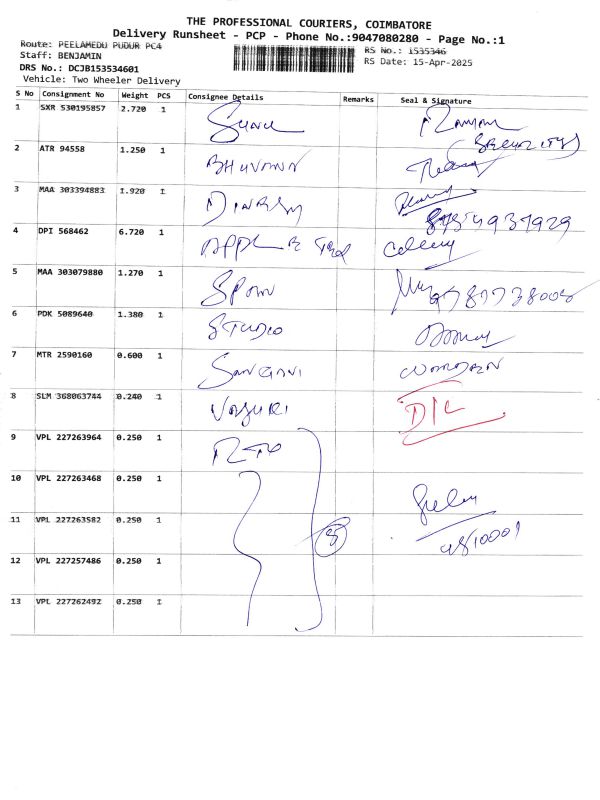 THE PROFESSIONAL COURIERS, COIMBATORE
Delivery Runsheet - PCP - Phone No.:9047080280 - Page No.:1
Route: PEELAMEDU PUDUR PC4
Staff: BENJAMIN
DRS No.: DCJB153534601
Vehicle: Two Wheeler Delivery
RS No.: 1535346
RS Date: 15-Apr-2025
S No Consignment No Weight PCS Consignee Details Remarks Seal & Signature
1 SXR 530195857 2.720 1
SECURITY
2 ATR 94558 1.250 1 BHUVANA
3 MAA 303394883 1.920 1
4 DPI 568462 6.720 1
5 MAA 303079880 1.270 1
6 PDK 5089640 1.380 1 STUDIO
7 MTR 2590160 0.600 1 SANGAVI
8 SLM 368063744 0.240 1 D/L
9 VPL 227263964 0.250 1
10 VPL 227263468 0.250 1
11 VPL 227263582 0.250 1 5
12 VPL 227257486 0.250 1
13 VPL 227262492 0.250 1